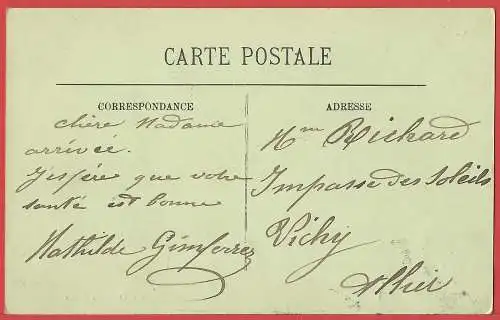 CARTE POSTALE
CORRESPONDANCE
chère Madame
arrivée.
J'espére que votre
santé est bonne
Mathilde
ADRESSE
Mme Richard
Impasse des Soleils
Vichy
Allier